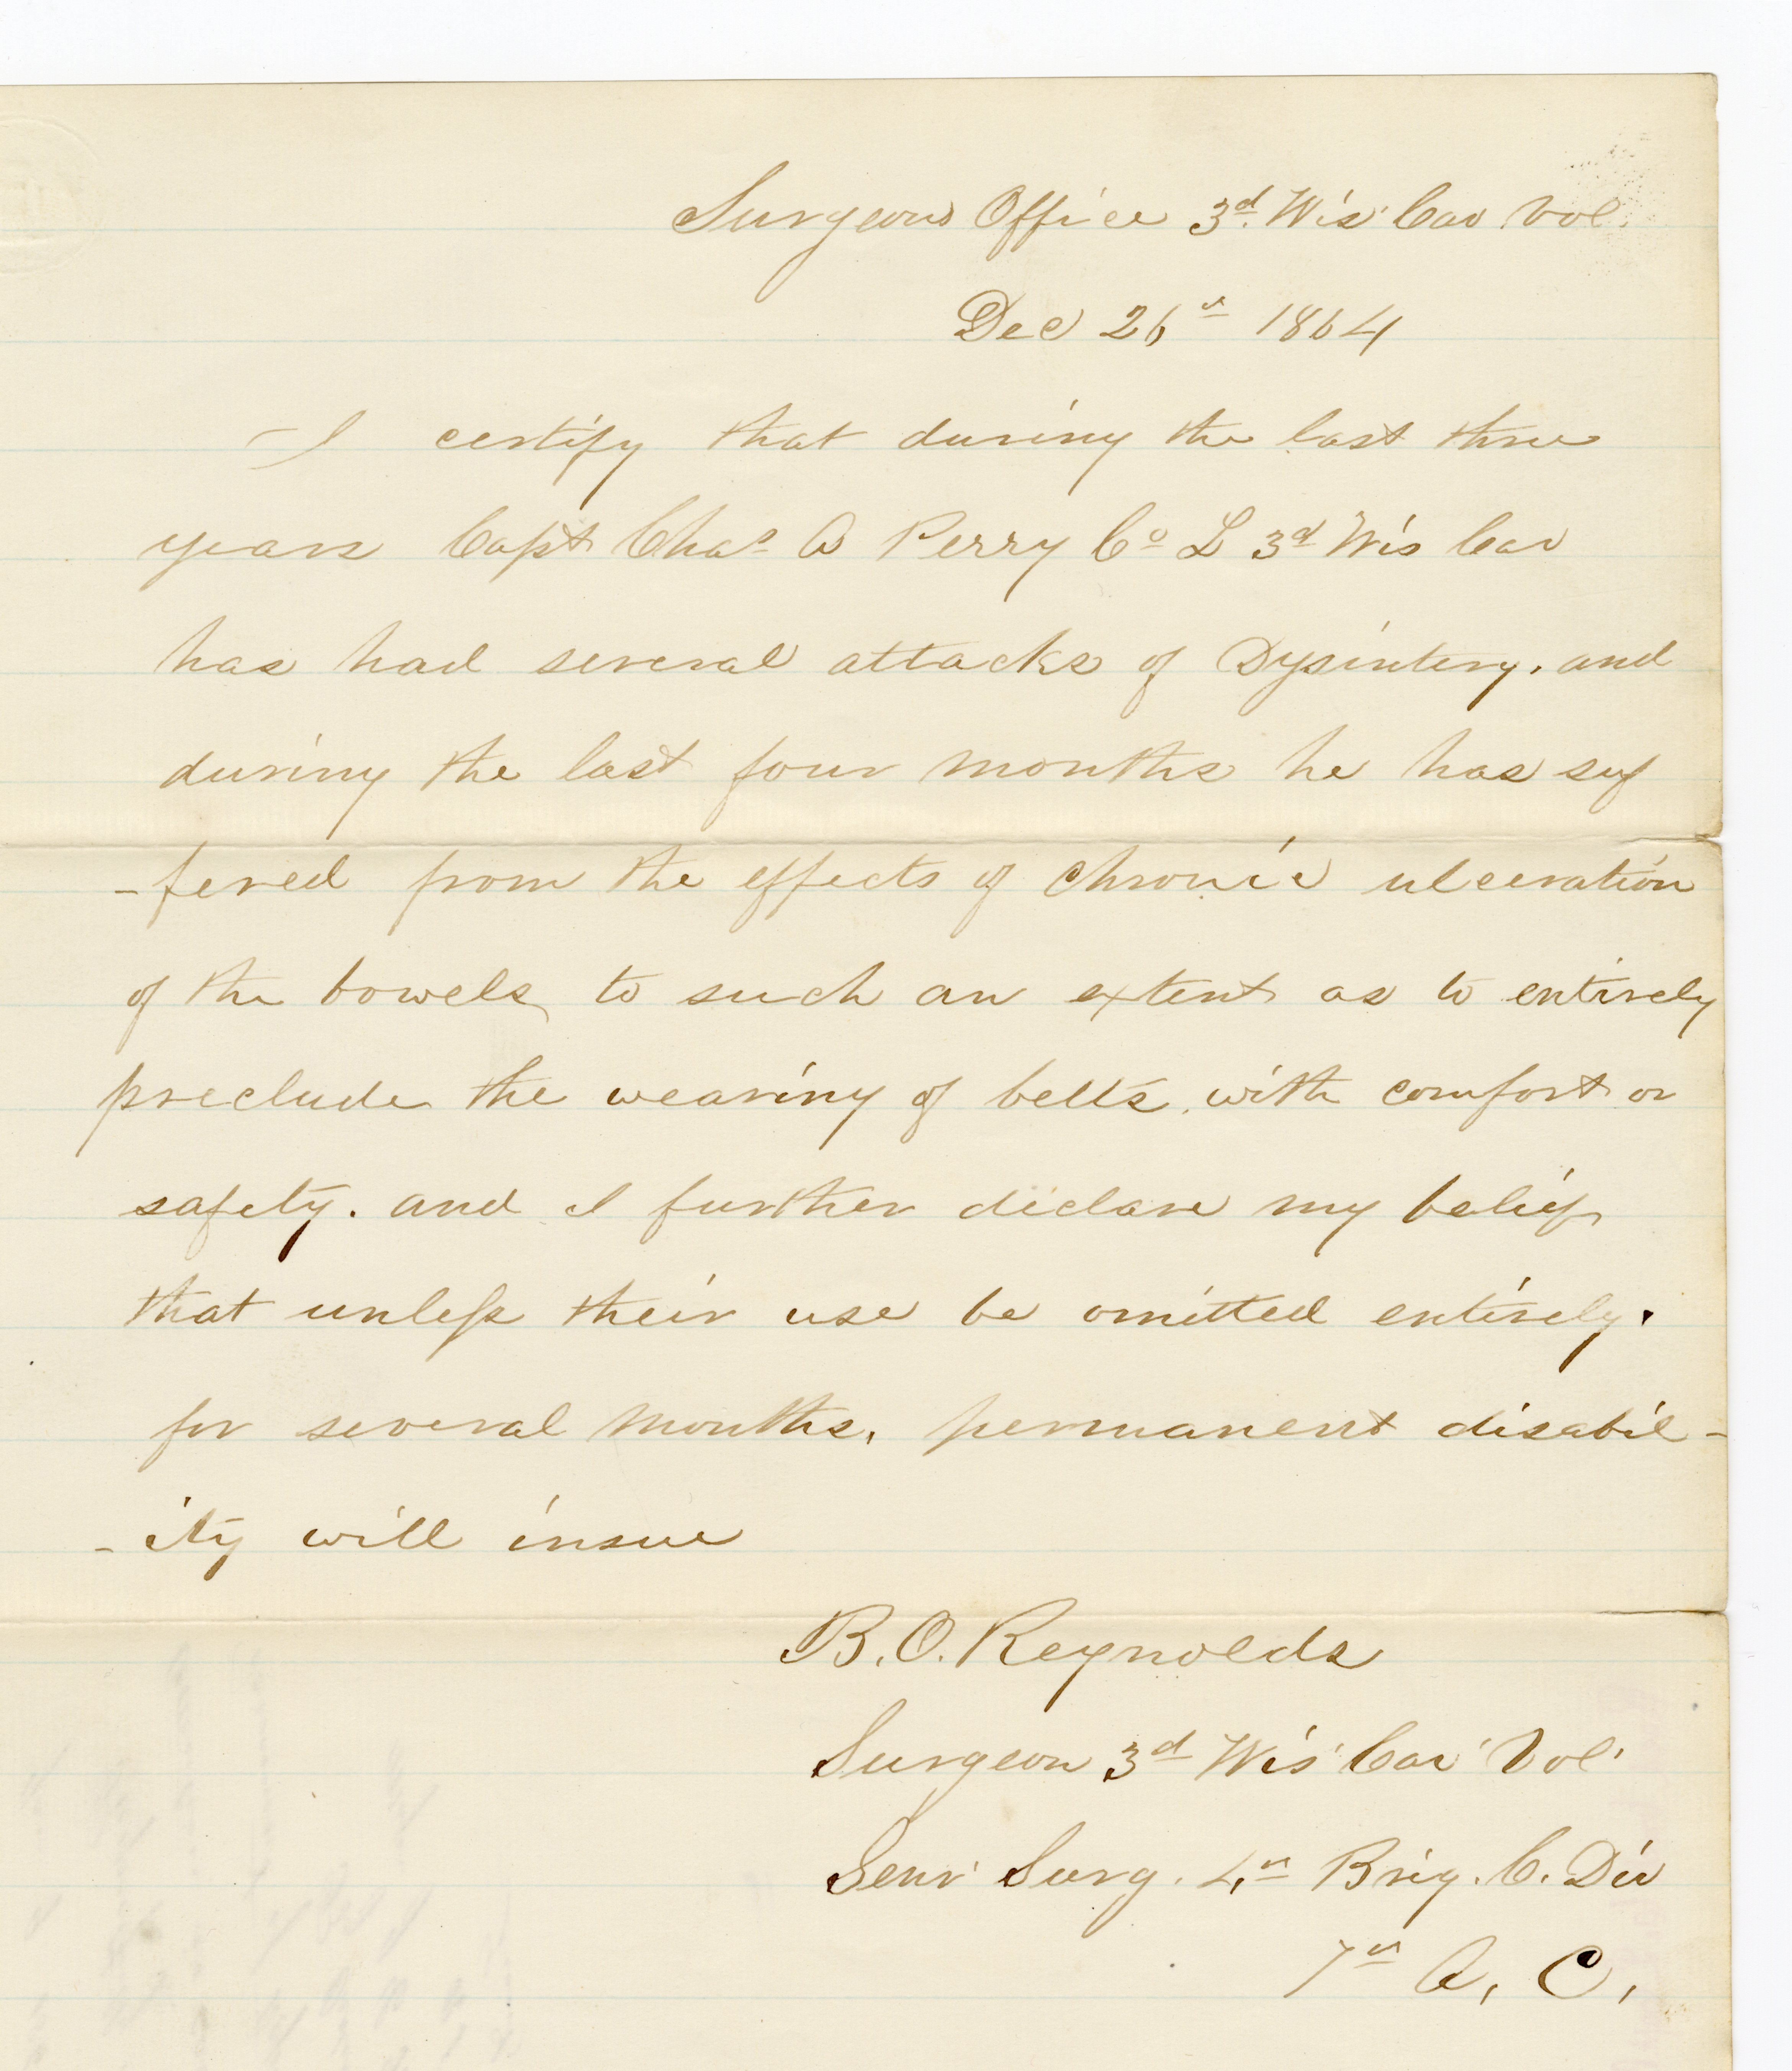 Surgeons Office 3d. Wis Cav Vol.
Dec 26th 1864
I certify that during the last three
years Capt Chas A Perry Co L 3d Wis Cav
has had several attacks of Dysintery. and
during the last four months he has suf
-fered from the effects of Chronic ulceration
of the bowels, to such an extent as to entirely
preclude the wearing of belts. with comfort or
safety. and I further declare my belief
that unless their use be omitted entirely.
for several months. permanent disabil-
-ity will insue
B. O. Reynolds
Surgeon 3d Wis Cav Vol
Senr Surg. 4th Brig. C. Div
7th A. C.